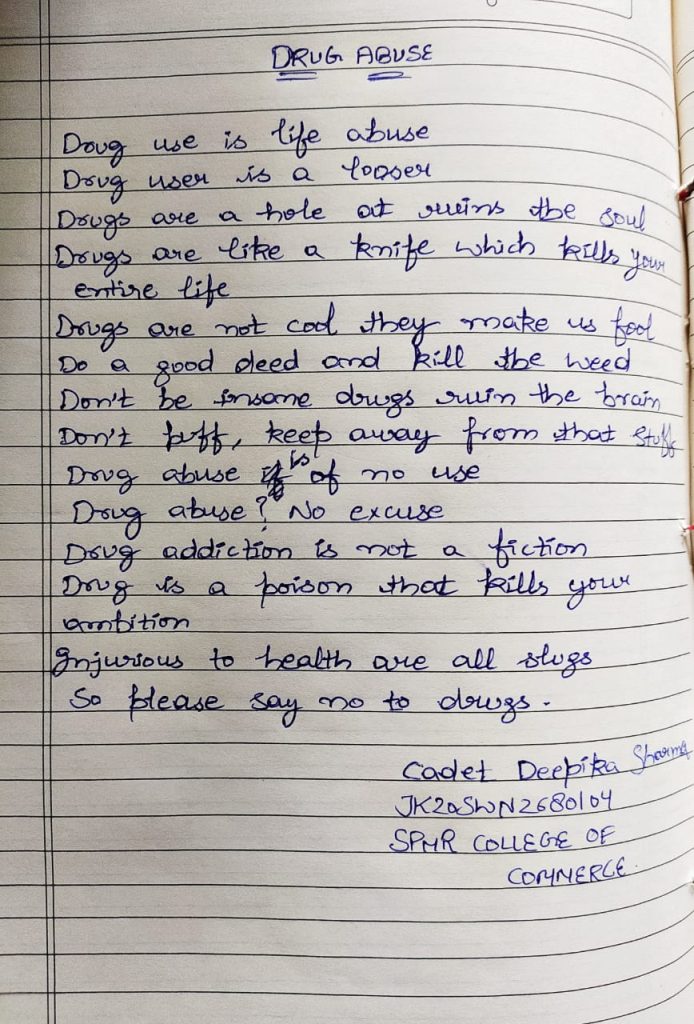 DRUG ABUSE
Drug use is life abuse
Drug user is a looser
Drugs are a hole at ruins the soul
Drugs are like a knife which kills your
entire life
Drugs are not cool they make us fool
Do a good deed and kill the weed
Don't be insane drugs ruin the brain
Don't puff, keep away from that stuff
Drug abuse is of no use
Drug abuse? No excuse
Drug addiction is not a fiction
Drug is a poison that kills your
ambition
Injurious to health are all slugs
So please say no to drugs.
Cadet Deepika Sharma
JK20SWN2680104
SPMR COLLEGE OF
COMMERCE